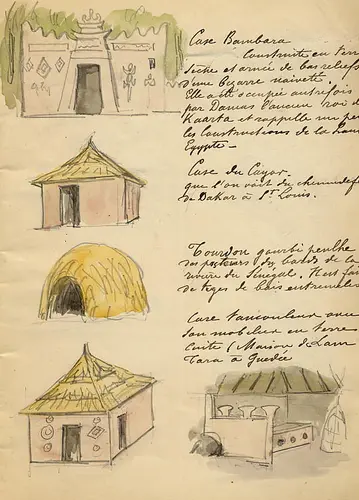 Case Bambara
Construite en terre
sèche et ornée de bas reliefs
d'une bizarre naïveté.
Elle a été occupée autrefois
par Damas l'ancien roi de
Kaarta et rappelle un peu
les Constructions de la
Egypte —
Case du Cayor
que l'on voit du chemin de f
de Dakar à St Louis.
gourbi peulhe
des pasteurs des bords de la
rivière du Sénégal. Il est fai
de tiges de bois entremelées
Case toucouleur avec
son mobilier en terre
Cuite (Maison de Lam
Toro à Guédé